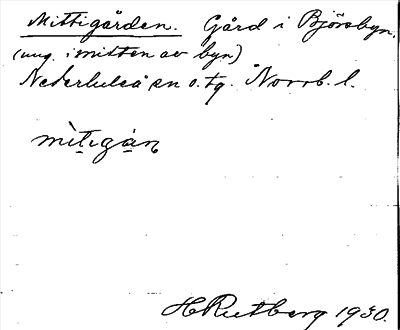 Mittigården. Gård i Björsbyn.
(ung. i mitten av byn)
Nederluleå sn o. tg. Norrb. l.
mìtigàn
H Rutberg 1930.